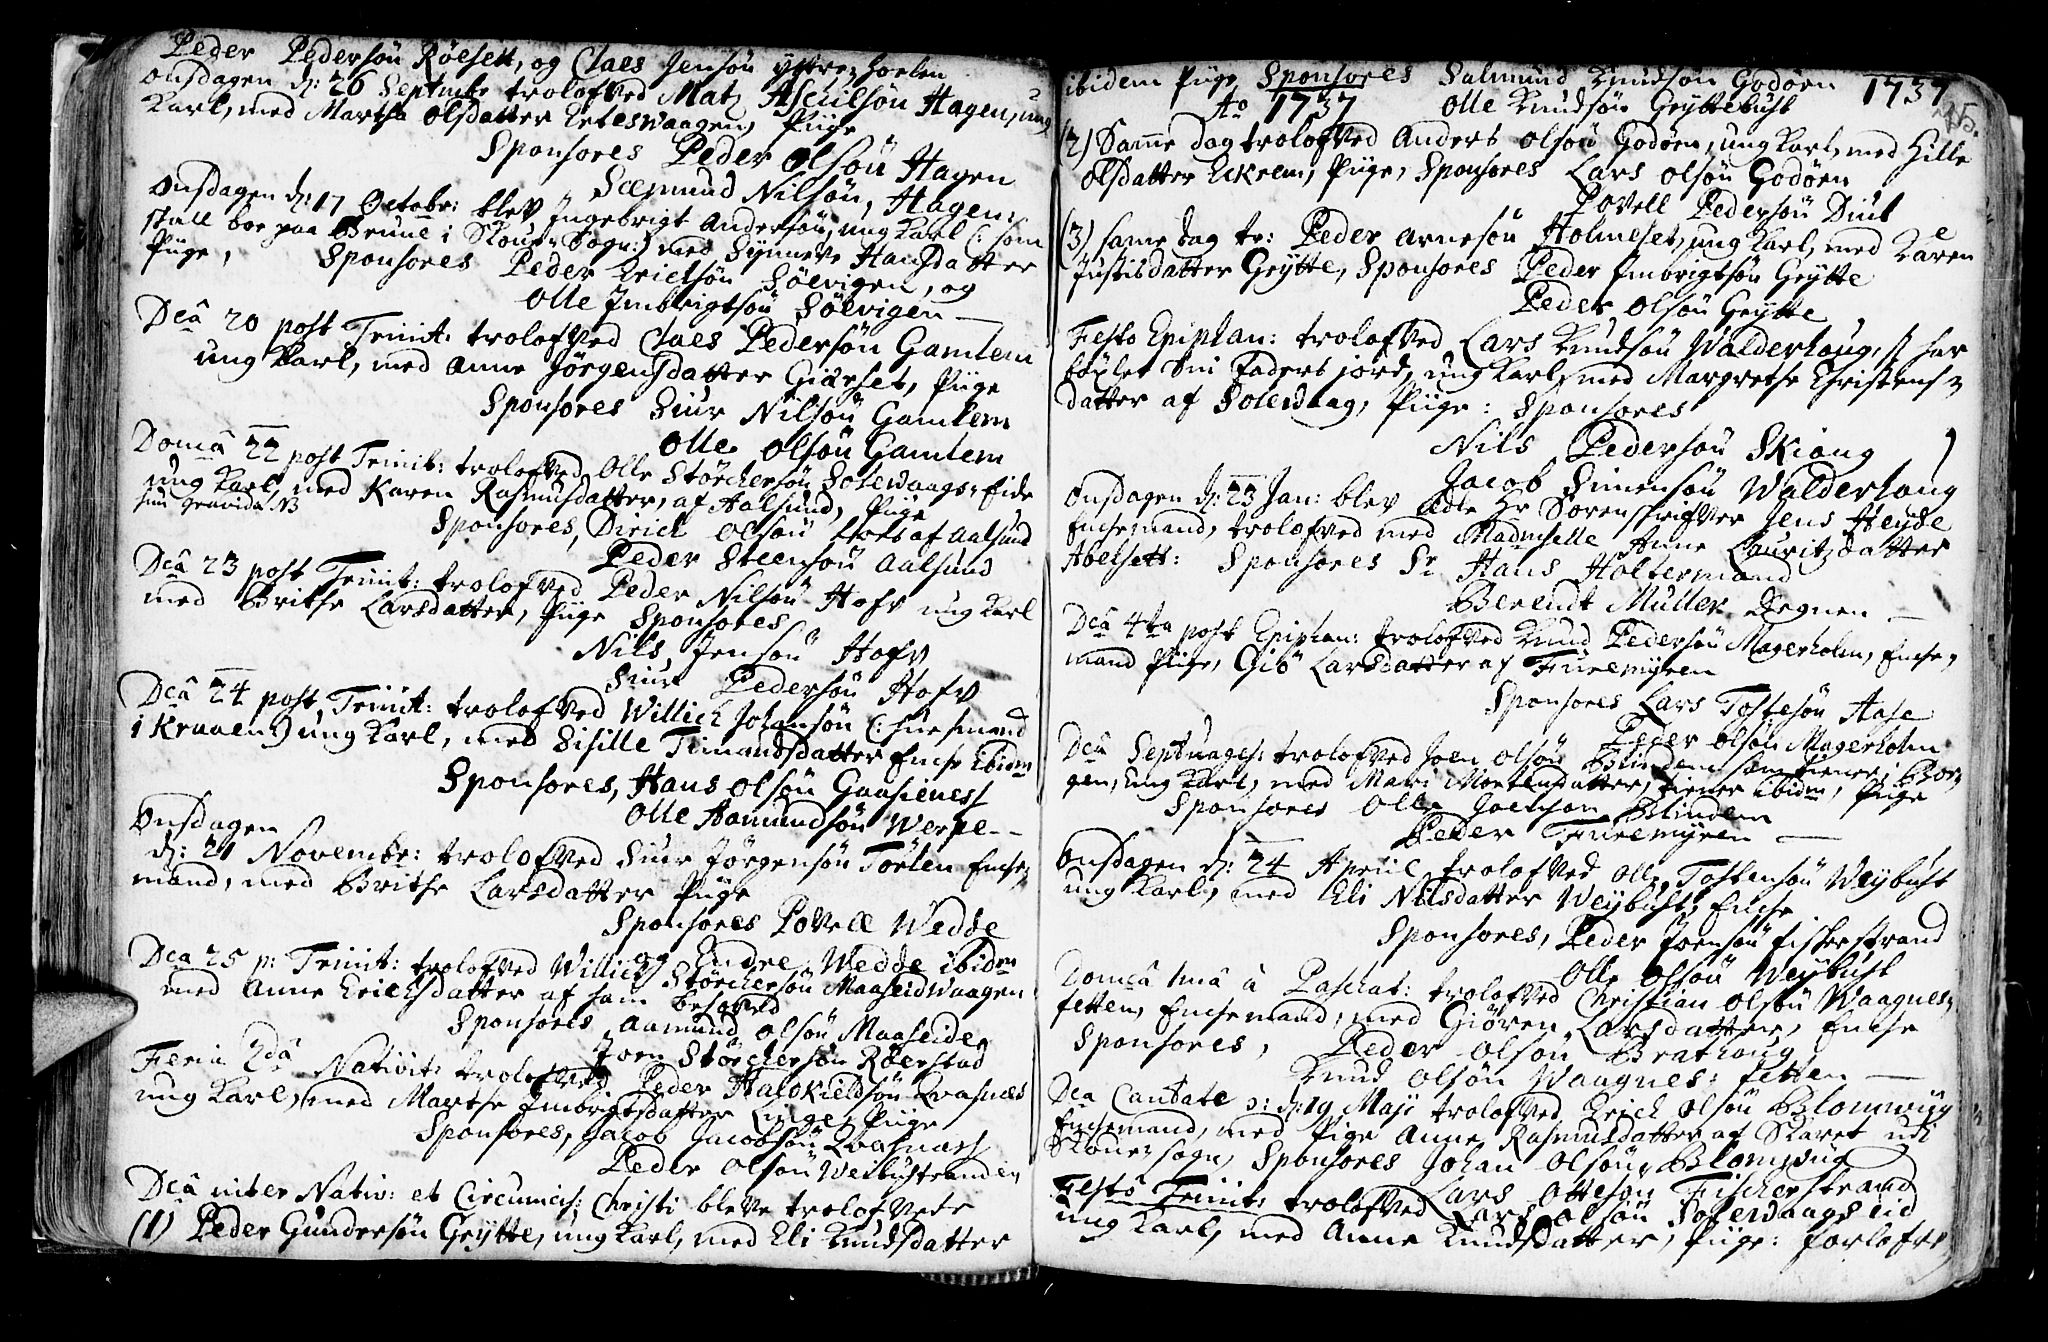 Peder Pedersøn Röesett, og Claes Jensøn yttre-hoelen
Onsdagen d: 26 Septembr trolofved Matz Aschilsøn Hagen, ung
Karl, med Martha Olsdatter Eeteswaagen, Piige
Sponsores Peder Olsøn Hagen
Sæmund Nilsøn, Hagen:
Onsdagen d: 17 Octobr: blev Ingebrigt Andersøn, ung Karl (: som
skall boe paa Bruue i Skoue-Sogn:) med Synneve Hansdatter
Piige, Sponsores Peder Erichsøn Söevigen, og
Olle Imbrigtsøn Söevigen
Dca 20 post Trinit: trolofved Claes Pedersøn Gamlem
ung Karl, med Anne Jörgensdatter Giærset, Piige
Sponsores Siur Nilsøn Gamlem
Olle Olsøn Gamlem
Domca 22 post Trinit: trolofved Olle Störchersøn Solewaags-Eide
ung Karl, med Karen Rasmusdatter, af Aalsund, Piige
Sponsores, Dirich Olsøn af Aalsund
Peder Steensøn Aalsund
Dca 23 post Trinit: trolofved Peder Nilsøn Hofv ung Karl
med Brithe Larsdatter, Piige Sponsores
Nils Jensøn Hofv
Siur Pedersøn Hofv
Dca 24 post Trinit: trolofved Willich Johansøn (: huusmand
i Kraaen:) ung Karl, med Sisille Timandsdatter Enche ibidm
Sponsores, Hans Olsøn Gaasienes
Olle Aamundsøn Werpe
Onsdagen
d: 21 Novembr: trolofved Siur Jörgensøn Törlen Enche-
mand, med Brithe Larsdatter Piige
Sponsores Povell Wedde
og Endre Wedde ibidm
Dca 25 p: Trinit: trolofved Willich Störchersøn Maaseidwaagen
med Anne Erichsdatter af sam besofved
Sponsores Aamund Olsøn Maaseide
Joen Störchersøn Röerstad
Feria 2da Nativit: trolofved Peder Halvkieldsøn Qvasnæs
ung Karl, med Marthe Imbrigtsdatter Piige
Sponsores, Jacob Jacobsøn Qvasnæs
Peder Olsøn Weibustranden
Dca inter Nativ: et Circumcis: Christi bleve trolofvede
(1) Peder Gundersøn Grytte, ung Karl, med Eli Knudsdatter
ibidem Piige Sponsores Salmund Knudsøn Godøen 1737
Ao 1737 Olle Knudsøn Gryttebust
(2) Samme dag trolofved Anders Olsøn Godøen, ung Karl, med Gille
Olsdatter Eckrem, Piige, Sponsores Lars Olsøn Godøen
Povell Pedersøn Diub
(3) same dag tr: Peder Arnesøn Holmeset, ung Karl, med Karen
Justisdatter Grytte, Sponsores Peder Imbrigtsøn Grytte
Peder Olsøn Grytte
Festo Epiphan: trolofved Lars Knudsøn Walderhoug, har
böxlet Sin Faders jord, ung Karl, med Margrethe Christens-
datter af Solewaag, Piige: Sponsores
Nils Pedersøn Skiong
Jacob Simensøn Walderhoug
Onsdagen d: 23 Jan: blev ædle Hr Sorenskrifver Jens Heyde
Enchemand, trolofved med Madmselle Anne Lauritzdatter
Abelsett: Sponsores Sr Hans Holtermand
Berendt Müller Degnen
Dca 4ta post Epiphan: trolofved Knud Pedersøn Magerholm, Enche-
mand Piige, Giö Larsdatter af Furemyren
Sponsores Lars Tostesøn Aase
Peder Olsøn Magerholm
Dca Septuages: trolofved Joen Olsøn Blindem som tiener i Bor-
gen, ung Karl, med Mari Mortensdatter, tiener ibidm, Piige
Sponsores Olle Joensøn Blindem
Peder Furemyren
Onsdagen d: 24 April trolofved Olle Tostensøn Weybust
ung Karl, med Eli Nilsdatter Weybust, Enche
Sponsores, Peder Joensøn Fiskerstrand
Olle Olsøn Weybust
Domca 1ma à Paschat: trolofved Christian Olsøn Waagnes-
setten, Enchemand, med Giören Larsdatter, Enche
Sponsores, Peder Olsøn Brathoug
Knud Olsøn Waagnes-setten
Dca Cantate o: d: 19 Maji trolofved Erich Olsøn Blomwiig
Enchemand, med Pige Anne Rasmusdatter af Skaret udi
Skoue-sogn, Sponsores Johan Olsøn Blomwiig
Lars Ottesøn Fischerstrand
Festo Trinit: trolofved Lars Olsøn Solewaagseid
ung Karl, med Anne Knudsdatter, Piige: forlofve